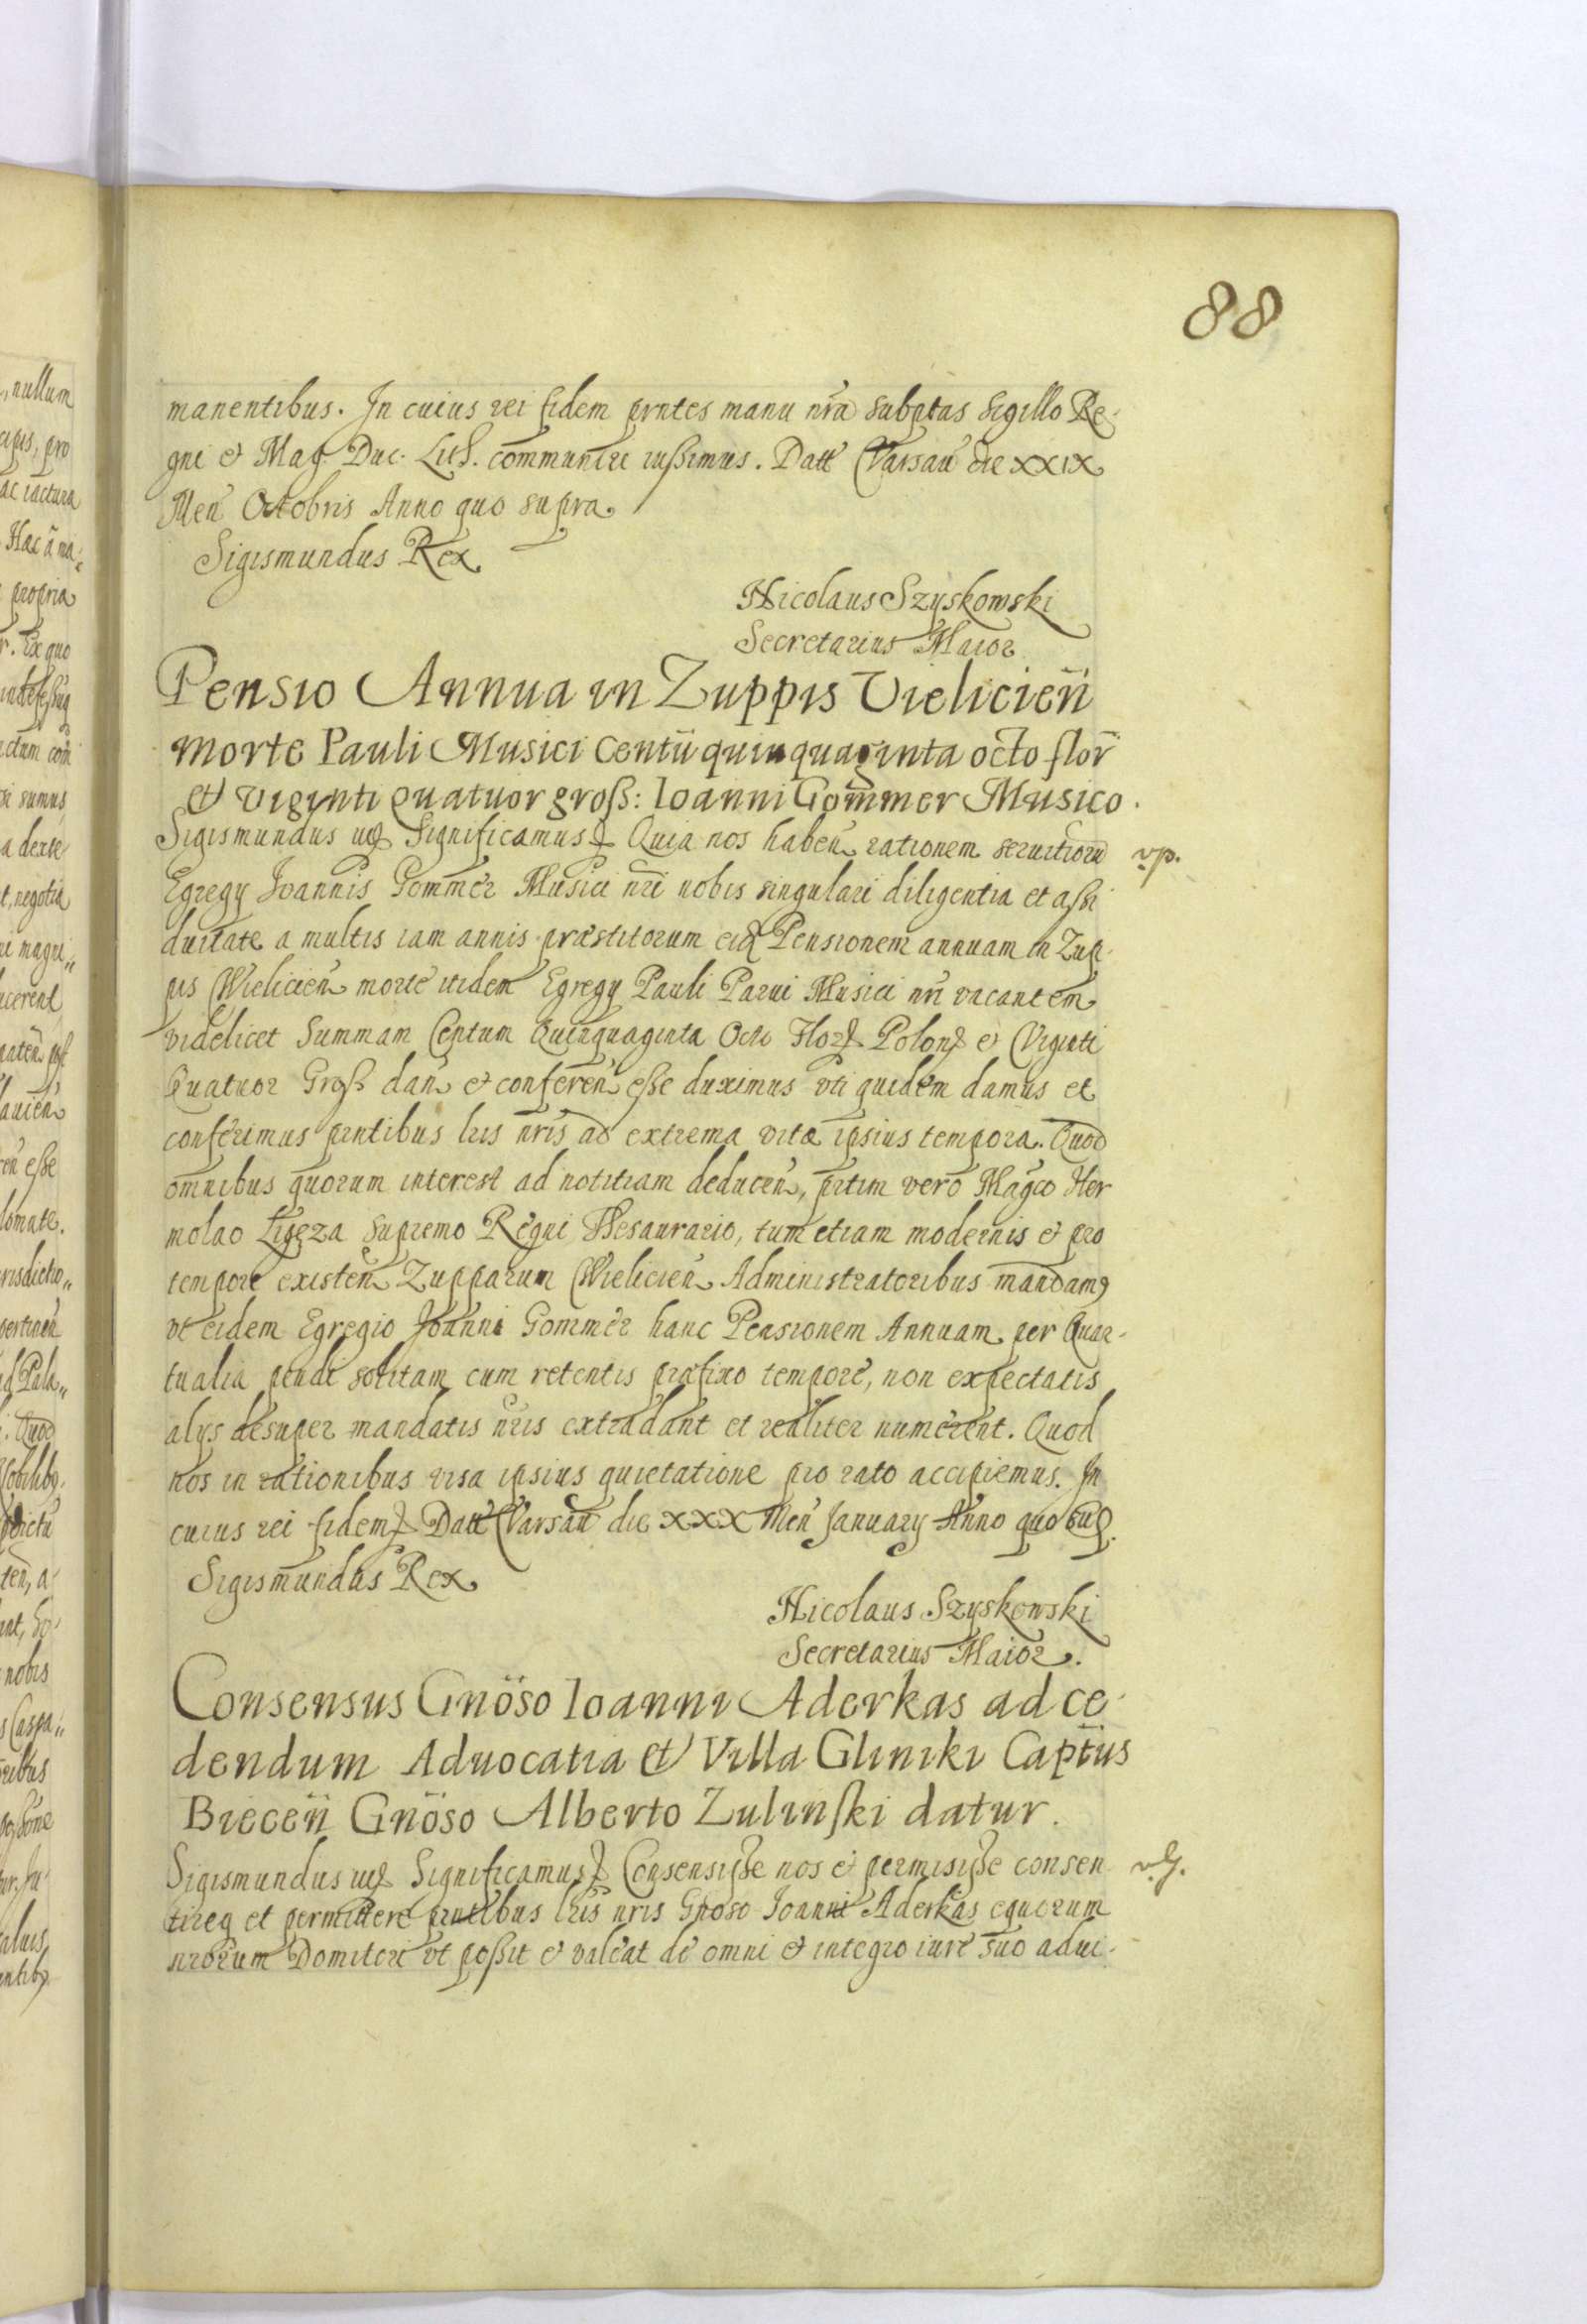 88
manentibus. In cuius rei fidem prntes manu nrã subptas sigillo Re-
gni et Mag. Duc. Lith. communire iussimus. Datt Varsaũ die XXIX
Meñ Octobris Anno quo supra
Sigismundus Rex
Nicolaus Szyskowski
Secretarius Maior
Pensio Annua in Zuppis Vielicieñ
morte Pauli Musici Centũ quinquaginta octo flor̃
et Viginti quatuor gross: Ioanni Gom̃mer Musico.
Sigismundus Significamus Quia nos habeñ rationem servitiorũ
vp.
Egregy Joannis Gommer Musici nri nobis singulari diligentia et assi
duitate a multis iam annis præstitorum eid Pensionem annuam in Zup-
pis Wielicieñ morte itidem Egregy Pauli Parui Musici nri vacantem
videlicet Summam Centum Quinquaginta Octo Flor Polon et Viginti
Quatuor Gross dañ et confereñ esse duximus vti quidem damus et
conferimus prntibus lris nr̃is ad extrema vitæ ipsius tempora. Quod
omnibus quorum interest ad notitiam deduceñ, prtim vero Magco Her
molao Ligęza Supremo Regni Thesaurario, tum etiam modernis et pro
tempore existeñ Zupparum Wielicieñ Administratoribus mandamus
vt eidem Egregio Joanni Gommer hanc Pensionem Annuam per Quar-
tualia pendi solitam cum retentis præfixo tempore, non expectatis
alys desuper mandatis nr̃is extradant et realiter numerent. Quod
nos in rationibus visa ipsius quietatione pro rato accipiemus. In
cuius rei fidem Datt Varsaũ die XXX Meñ January Anno quo sup.
Sigismundus Rex
Nicolaus Szyskowski
Secretarius Maior.
Consensus Gnõso Ioanni Aderkas ad ce-
dendum Aduocatia et Villa Gliniki Captũs
Bieceñ Gnõso Alberto Zulinski datur.
Sigismundus Significamus Consensisse nos et permisisse consen
tireq et permittere prntibus lris nris Gnoso Ioanni Aderkas equorum
nrorum Domitori vt possit et valeat de omni et integro iure suo adui-